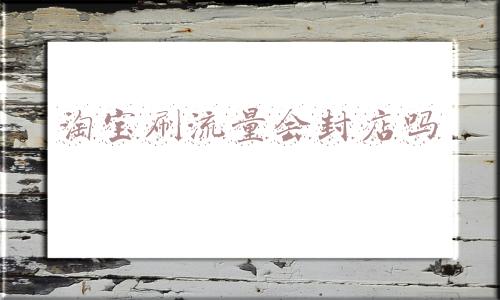 淘宝刷流量会封店吗